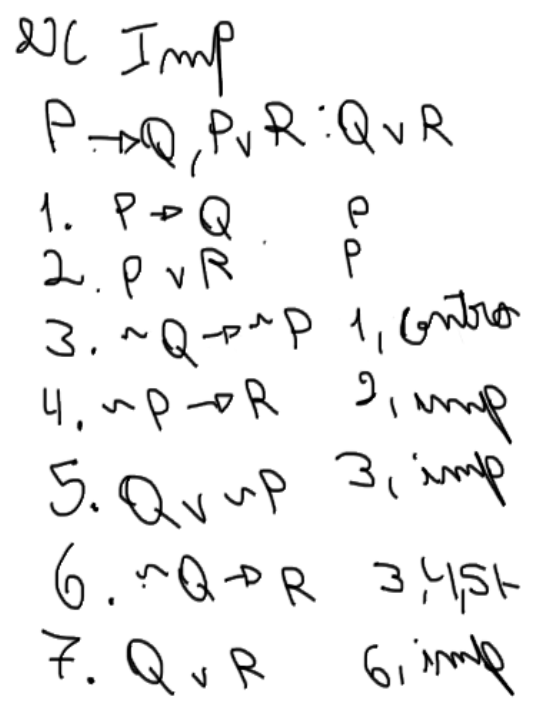 Imp
P → Q, P ∨ R : Q ∨ R
1. P → Q P
2. P ∨ R P
3. ~Q → ~P 1, contra
4. ~P → R 2, imp
5. Q ∨ ~P 3, imp
6. ~Q → R 3,4,
7. Q ∨ R 6, imp